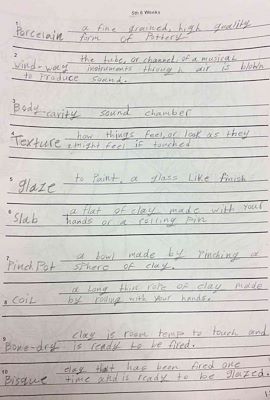 5th 6 Weeks
1 a fine grained, high quality
Porcelain form of Pottery
2 the tube, or channel, of a musical
Wind-way instruments through air is blown
to Produce sound.
3
Body cavity sound chamber
4 how things feel, or look as they
Texture might feel is touched
5 glaze to Paint, a glass Like finish
6 a flat of clay made with your
Slab hands or a rolling Pin
7 a bowl made by Pinching a
Pinch Pot sphere of clay.
a long thin rope of clay made
8 Coil by rolling with your hands.
9 clay is room temp to touch and
Bone-dry is ready to be fired.
10 clay that has been fired one
Bisque time and is ready to be glazed.